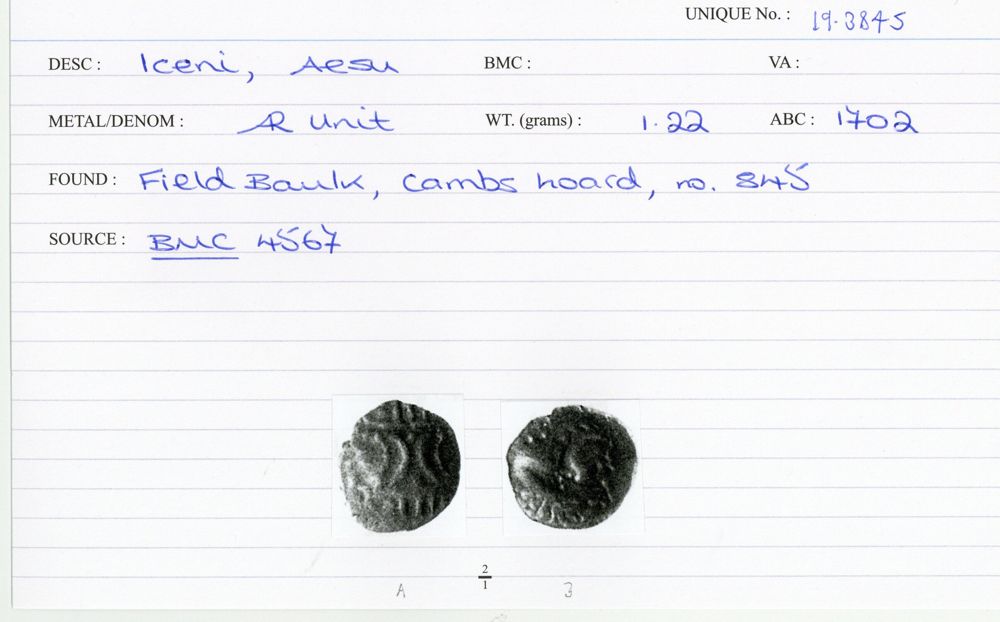 UNIQUE No. : 19.3845
DESC : Iceni, Aesu BMC : VA :
METAL/DENOM : AR Unit WT. (grams) : 1.22 ABC : 1702
FOUND : Field Baulk, Cambs hoard, no. 845
SOURCE : BMC 4567
2
1
A B